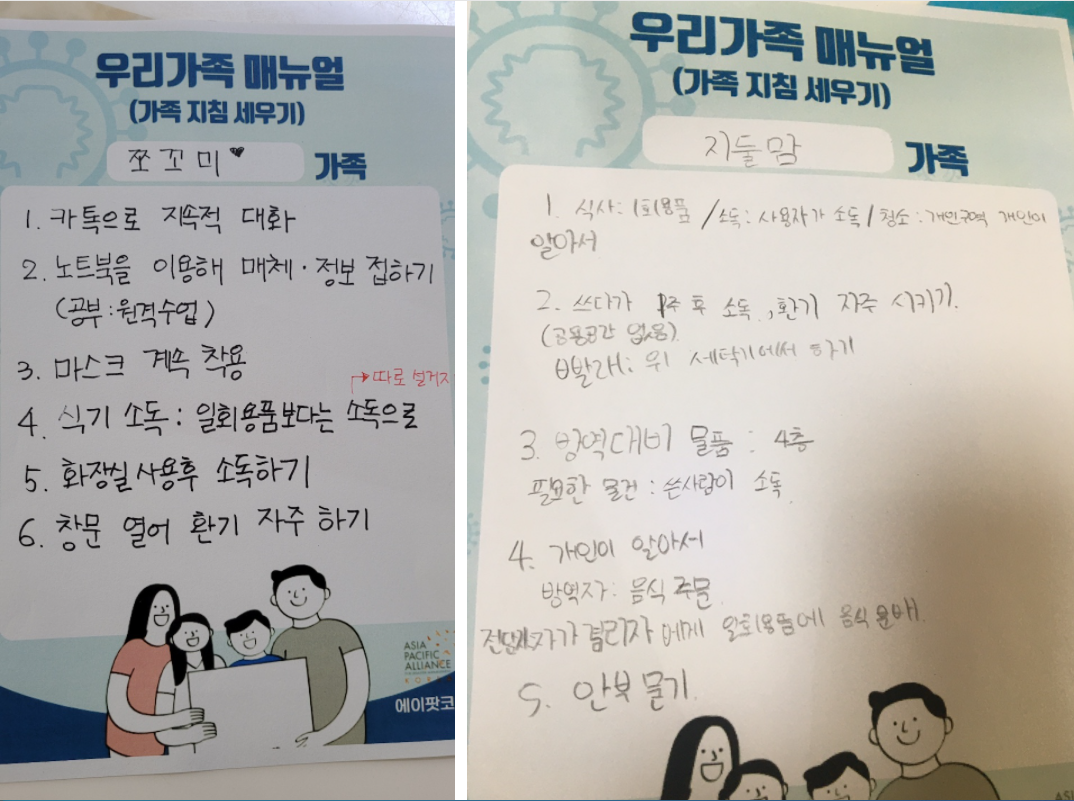 우리가족 매뉴얼
(가족 지침 세우기)
쪼꼬미♥ 가족
1. 카톡으로 지속적 대화
2. 노트북을 이용해 매체·정보 접하기
(공부:원격수업)
3. 마스크 계속 착용
→따로 설거지
4. 식기 소독: 일회용품보다는 소독으로
5. 화장실사용후 소독하기
6. 창문 열어 환기 자주 하기
ASIA
PACIFIC
ALLIANCE
KOREA
에이팟코
우리가족 매뉴얼
(가족 지침 세우기)
지둘맘 가족
1. 식사: 1회용품 /소독: 사용자가 소독/ 청소: 개인구역 개인이
알아서
2. 쓰다가 1주 후 소독, 환기 자주 시키기.
(공용공간 없음)
빨래: 위 세탁기에서 하기
3. 방역대비 물품: 4층
필요한 물건: 쓴사람이 소독.
4. 개인이 알아서
방역자: 음식 주문
격리자에게 일회용품에 음식 운배.
5. 안부 묻기.